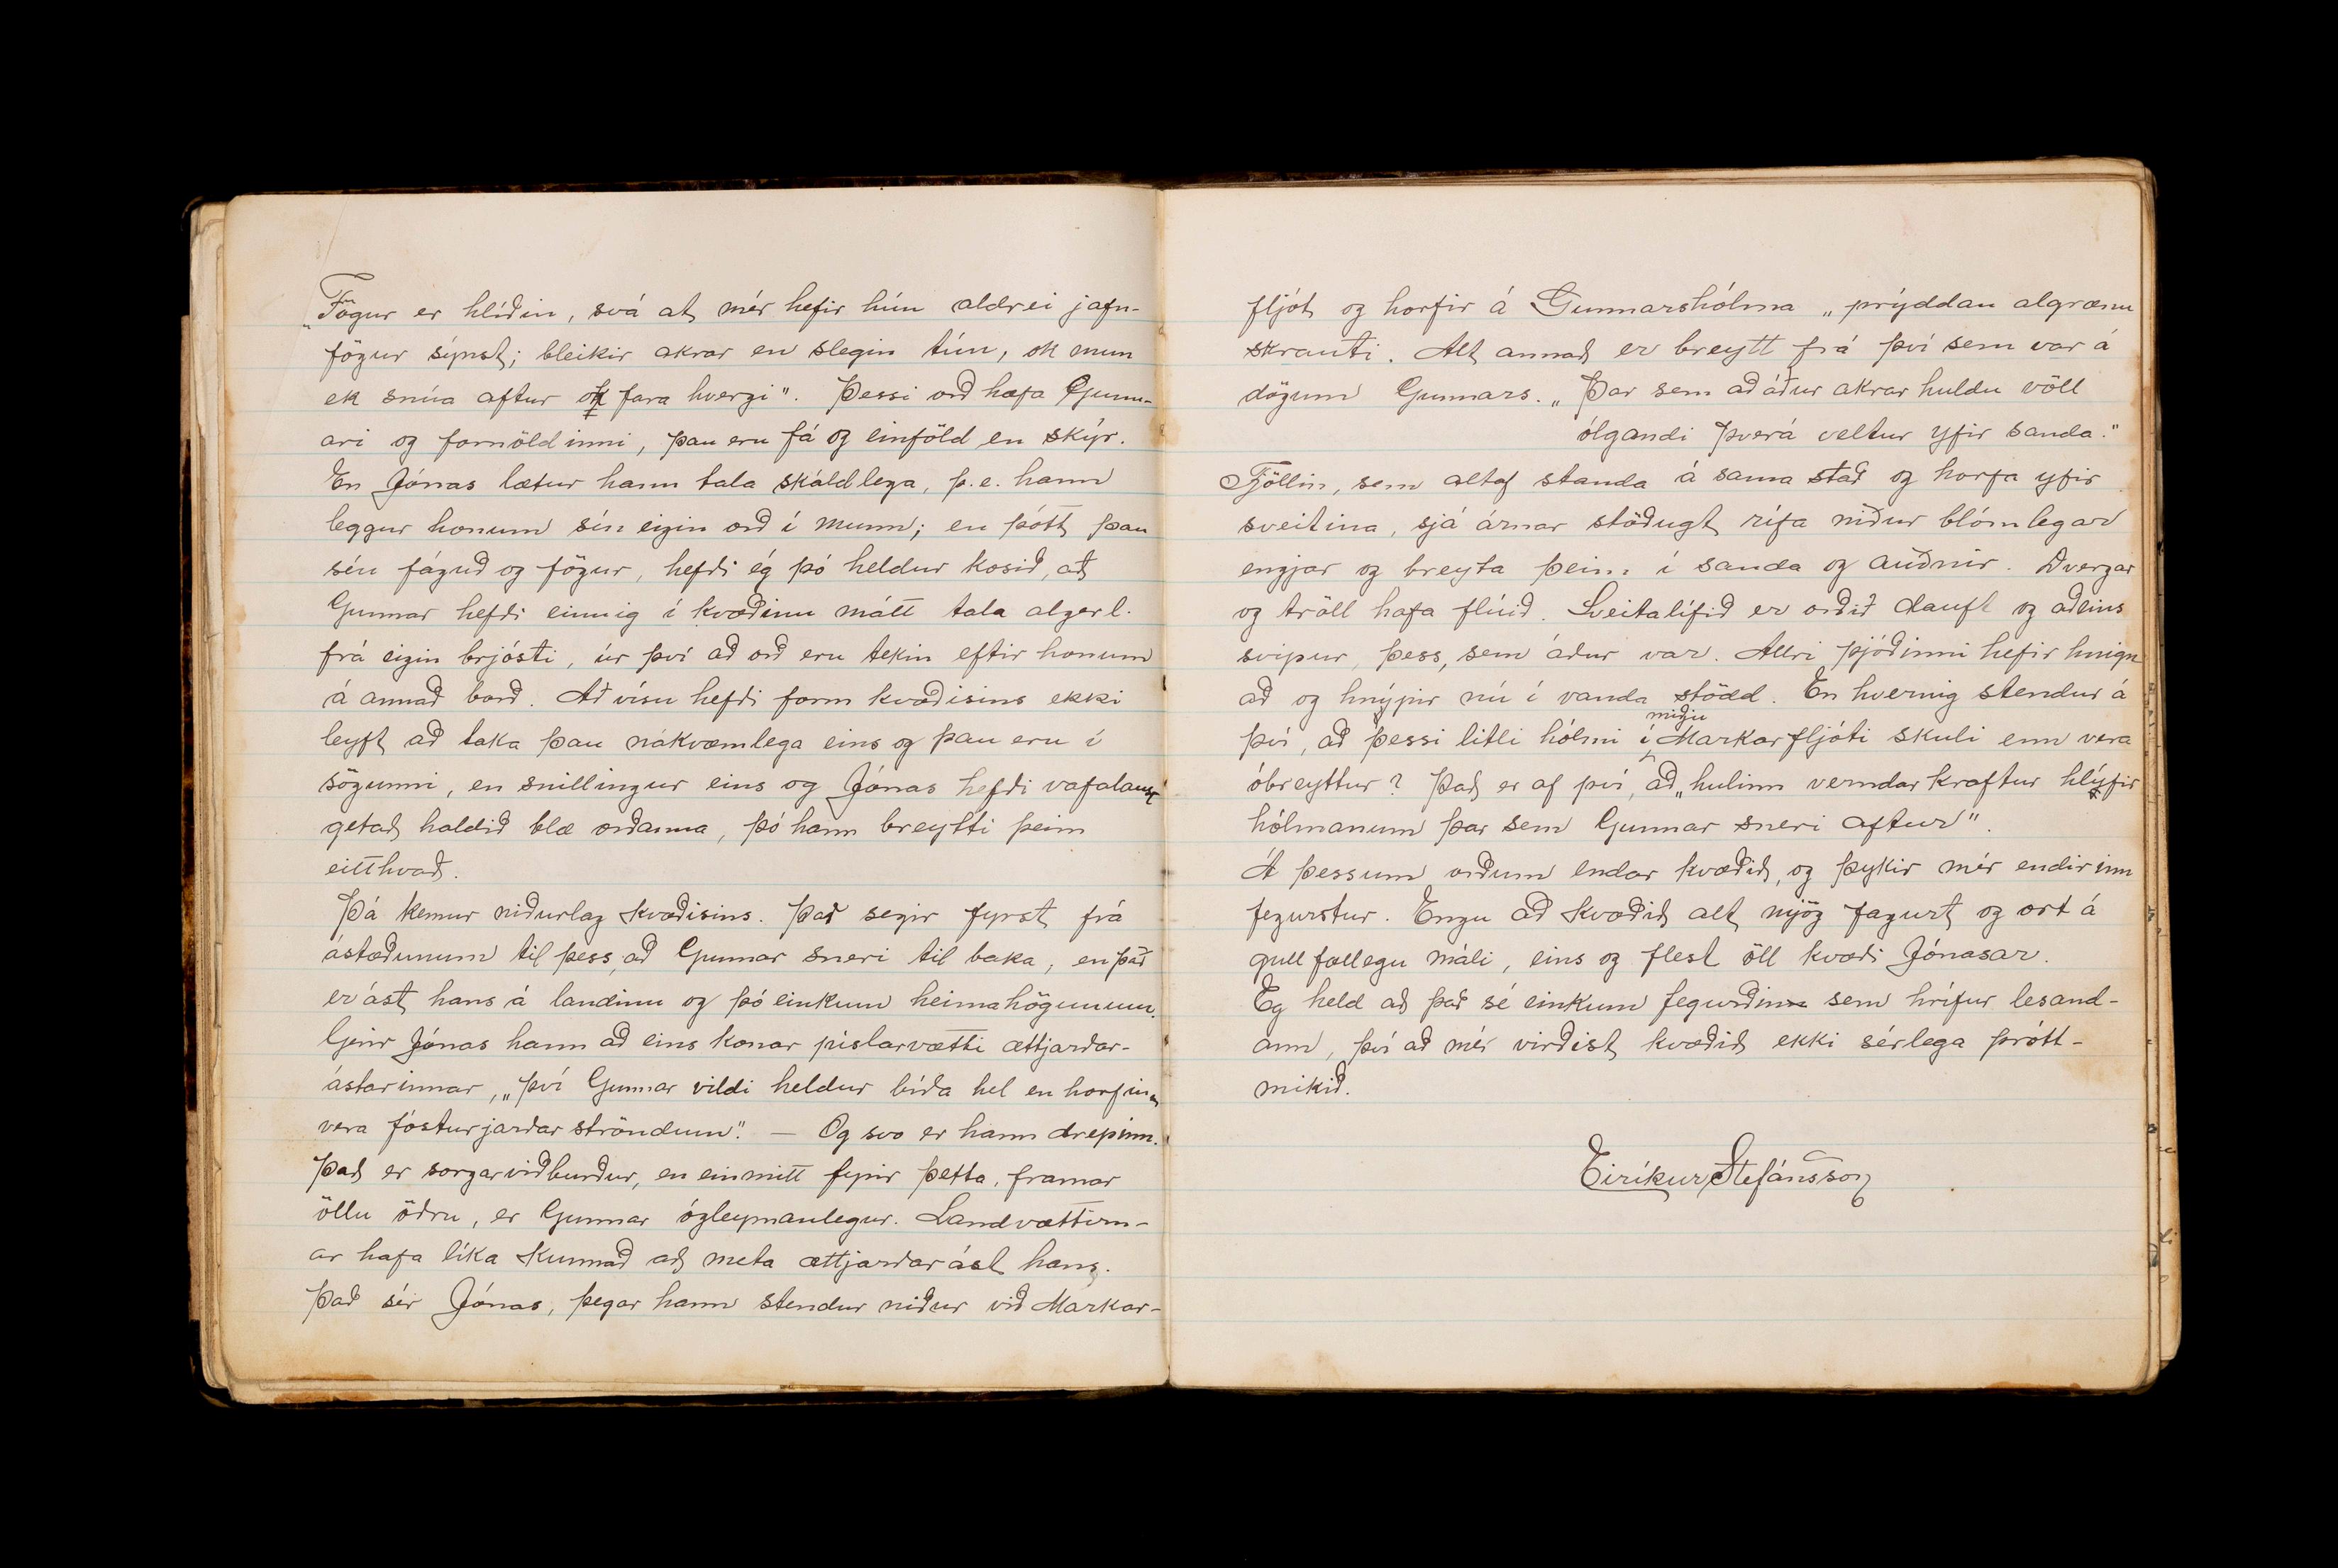 „Fögur er hlíðin, svá at mér hefir hún aldrei jafn-
fögur sýnst; bleikir akrar en slegin tún, ok mun
ek snúa aftur ok fara hvergi". Þessi orð hæfa Gunn-
ari og fornöldinni, þau eru fá og einföld en skýr.
En Jónas lætur hann tala skáldlega, þ.e. hann
leggur honum sín eigin orð í munn; en þótt þau
séu fáguð og fögur, hefði ég þó heldur kosið, að
Gunnar hefði einnig í kvæðinu mátt tala algerl.
frá eigin brjósti, úr því að orð eru tekin eftir honum
á annað borð. Að vísu hefði form kvæðisins ekki
leyft að taka þau nákvæmlega eins og þau eru í
sögunni, en snillingur eins og Jónas hefði vafalaust
getað haldið blæ orðanna, þó hann breytti þeim
eitthvað.
Þá kemur niðurlag kvæðisins. Það segir fyrst frá
ástæðunum til þess, að Gunnar sneri til baka, en það
er ást hans á landinu og þó einkum heimahögunum.
Gerir Jónas hann að eins konar píslarvætti ættjarðar-
ástarinnar, „því Gunnar vildi heldur bíða hel en horfinn
vera fósturjarðar ströndum". — Og svo er hann drepinn.
Það er sorgarviðburður, en einmitt fyrir þetta, framar
öllu öðru, er Gunnar ógleymanlegur. Landvættirn-
ar hafa líka kunnað að meta ættjarðarást hans.
Það sér Jónas, þegar hann stendur niður við Markar-
fljót og horfir á Gunnarshólma „prýddan algrænu
skrauti. Alt annað er breytt frá því sem var á
dögum Gunnars. „Þar sem að áður akrar huldu völl
ólgandi Þverá veltur yfir sanda."
Fjöllin, sem altaf standa á sama stað og horfa yfir
sveitina, sjá árnar stöðugt rífa niður blómlegar
engjar og breyta þeim í sanda og auðnir. Dvergar
og tröll hafa flúið. Sveitalífið er orðið dauft og aðeins
svipur þess, sem áður var. Allri þjóðinni hefir hnign
að og hnýpir nú í vanda stödd. En hvernig stendur á
því, að þessi litli hólmi í miðju Markarfljóti skuli enn vera
óbreyttur? Það er af því, að „hulinn verndarkraftur hlýfir
hólmanum þar sem Gunnar sneri aftur".
Á þessum orðum endar kvæðið, og þykir mér endirinn
fegurstur. Engu að kvæðið alt mjög fagurt og ort á
gullfallegu máli, eins og flest öll kvæði Jónasar.
Eg held að það sé einkum fegurðin sem hrífur lesand-
ann, því að mér virðist kvæðið ekki sérlega þrótt-
mikið.
Eiríkur Stefánsson